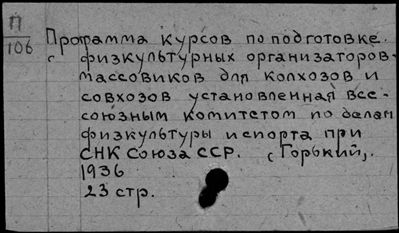 П
106
Программа курсов по подготовке
физкультурных организаторов-
массовиков для колхозов и
совхозов установленная Все-
союзным комитетом по делам
физкультуры и спорта при
СНК Союза ССР. (Горький).
1936
23 стр.